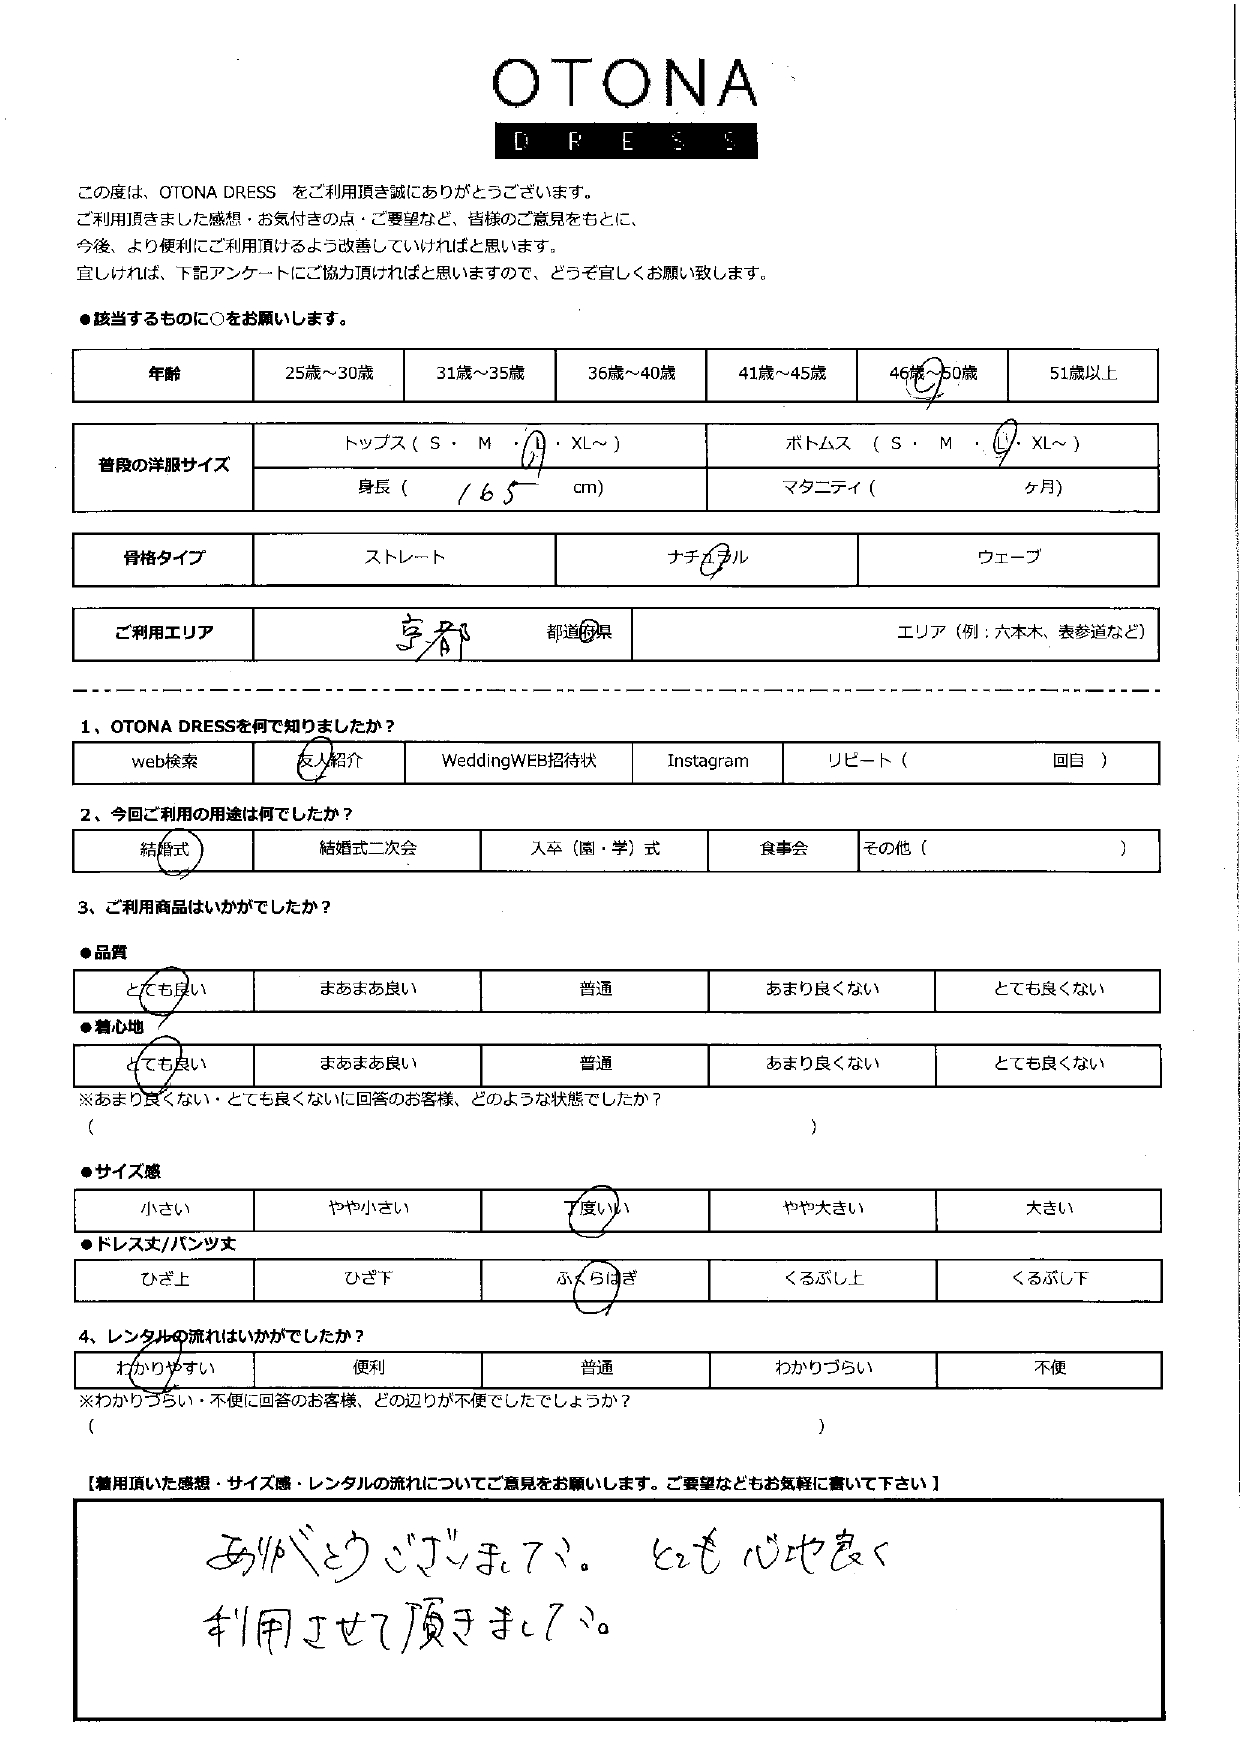 OTONA
DRESS
この度は、OTONA DRESS をご利用頂き誠にありがとうございます。
ご利用頂きました感想・お気付きの点・ご要望など、皆様のご意見をもとに、
今後、より便利にご利用頂けるよう改善していければと思います。
宜しければ、下記アンケートにご協力頂ければと思いますので、どうぞ宜しくお願い致します。
●該当するものに○をお願いします。
年齢 25歳～30歳 31歳～35歳 36歳～40歳 41歳～45歳 46歳～50歳 51歳以上
普段の洋服サイズ
トップス ( S ・ M ・ L ・ XL～ ) ボトムス ( S ・ M ・ L ・ XL～ )
身長 ( 165 cm) マタニティ ( ヶ月)
骨格タイプ ストレート ナチュラル ウェーブ
ご利用エリア 京都 都道府県 エリア（例：六本木、表参道など）
1、OTONA DRESSを何で知りましたか？
web検索 友人紹介 WeddingWEB招待状 Instagram リピート ( 回目 )
2、今回ご利用の用途は何でしたか？
結婚式 結婚式二次会 入卒（園・学）式 食事会 その他 ( )
3、ご利用商品はいかがでしたか？
●品質
とても良い まあまあ良い 普通 あまり良くない とても良くない
●着心地
とても良い まあまあ良い 普通 あまり良くない とても良くない
※あまり良くない・とても良くないに回答のお客様、どのような状態でしたか？
( )
●サイズ感
小さい やや小さい 丁度いい やや大きい 大きい
●ドレス丈/パンツ丈
ひざ上 ひざ下 ふくらはぎ くるぶし上 くるぶし下
4、レンタルの流れはいかがでしたか？
わかりやすい 便利 普通 わかりづらい 不便
※わかりづらい・不便に回答のお客様、どの辺りが不便でしたでしょうか？
( )
【着用頂いた感想・サイズ感・レンタルの流れについてご意見をお願いします。ご要望などもお気軽に書いて下さい 】
ありがとうございました。 とても心地良く
利用させて頂きました。